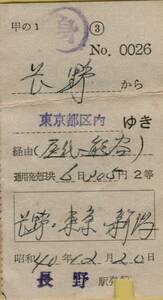 甲の1 ㊂ 身
No. 0026
長野 から
東京都区内 ゆき
経由(屋代・熊谷)
通用発売共 6日 205円 2等
長野・東京・新宿
昭和40年12月20日
長野 駅発行